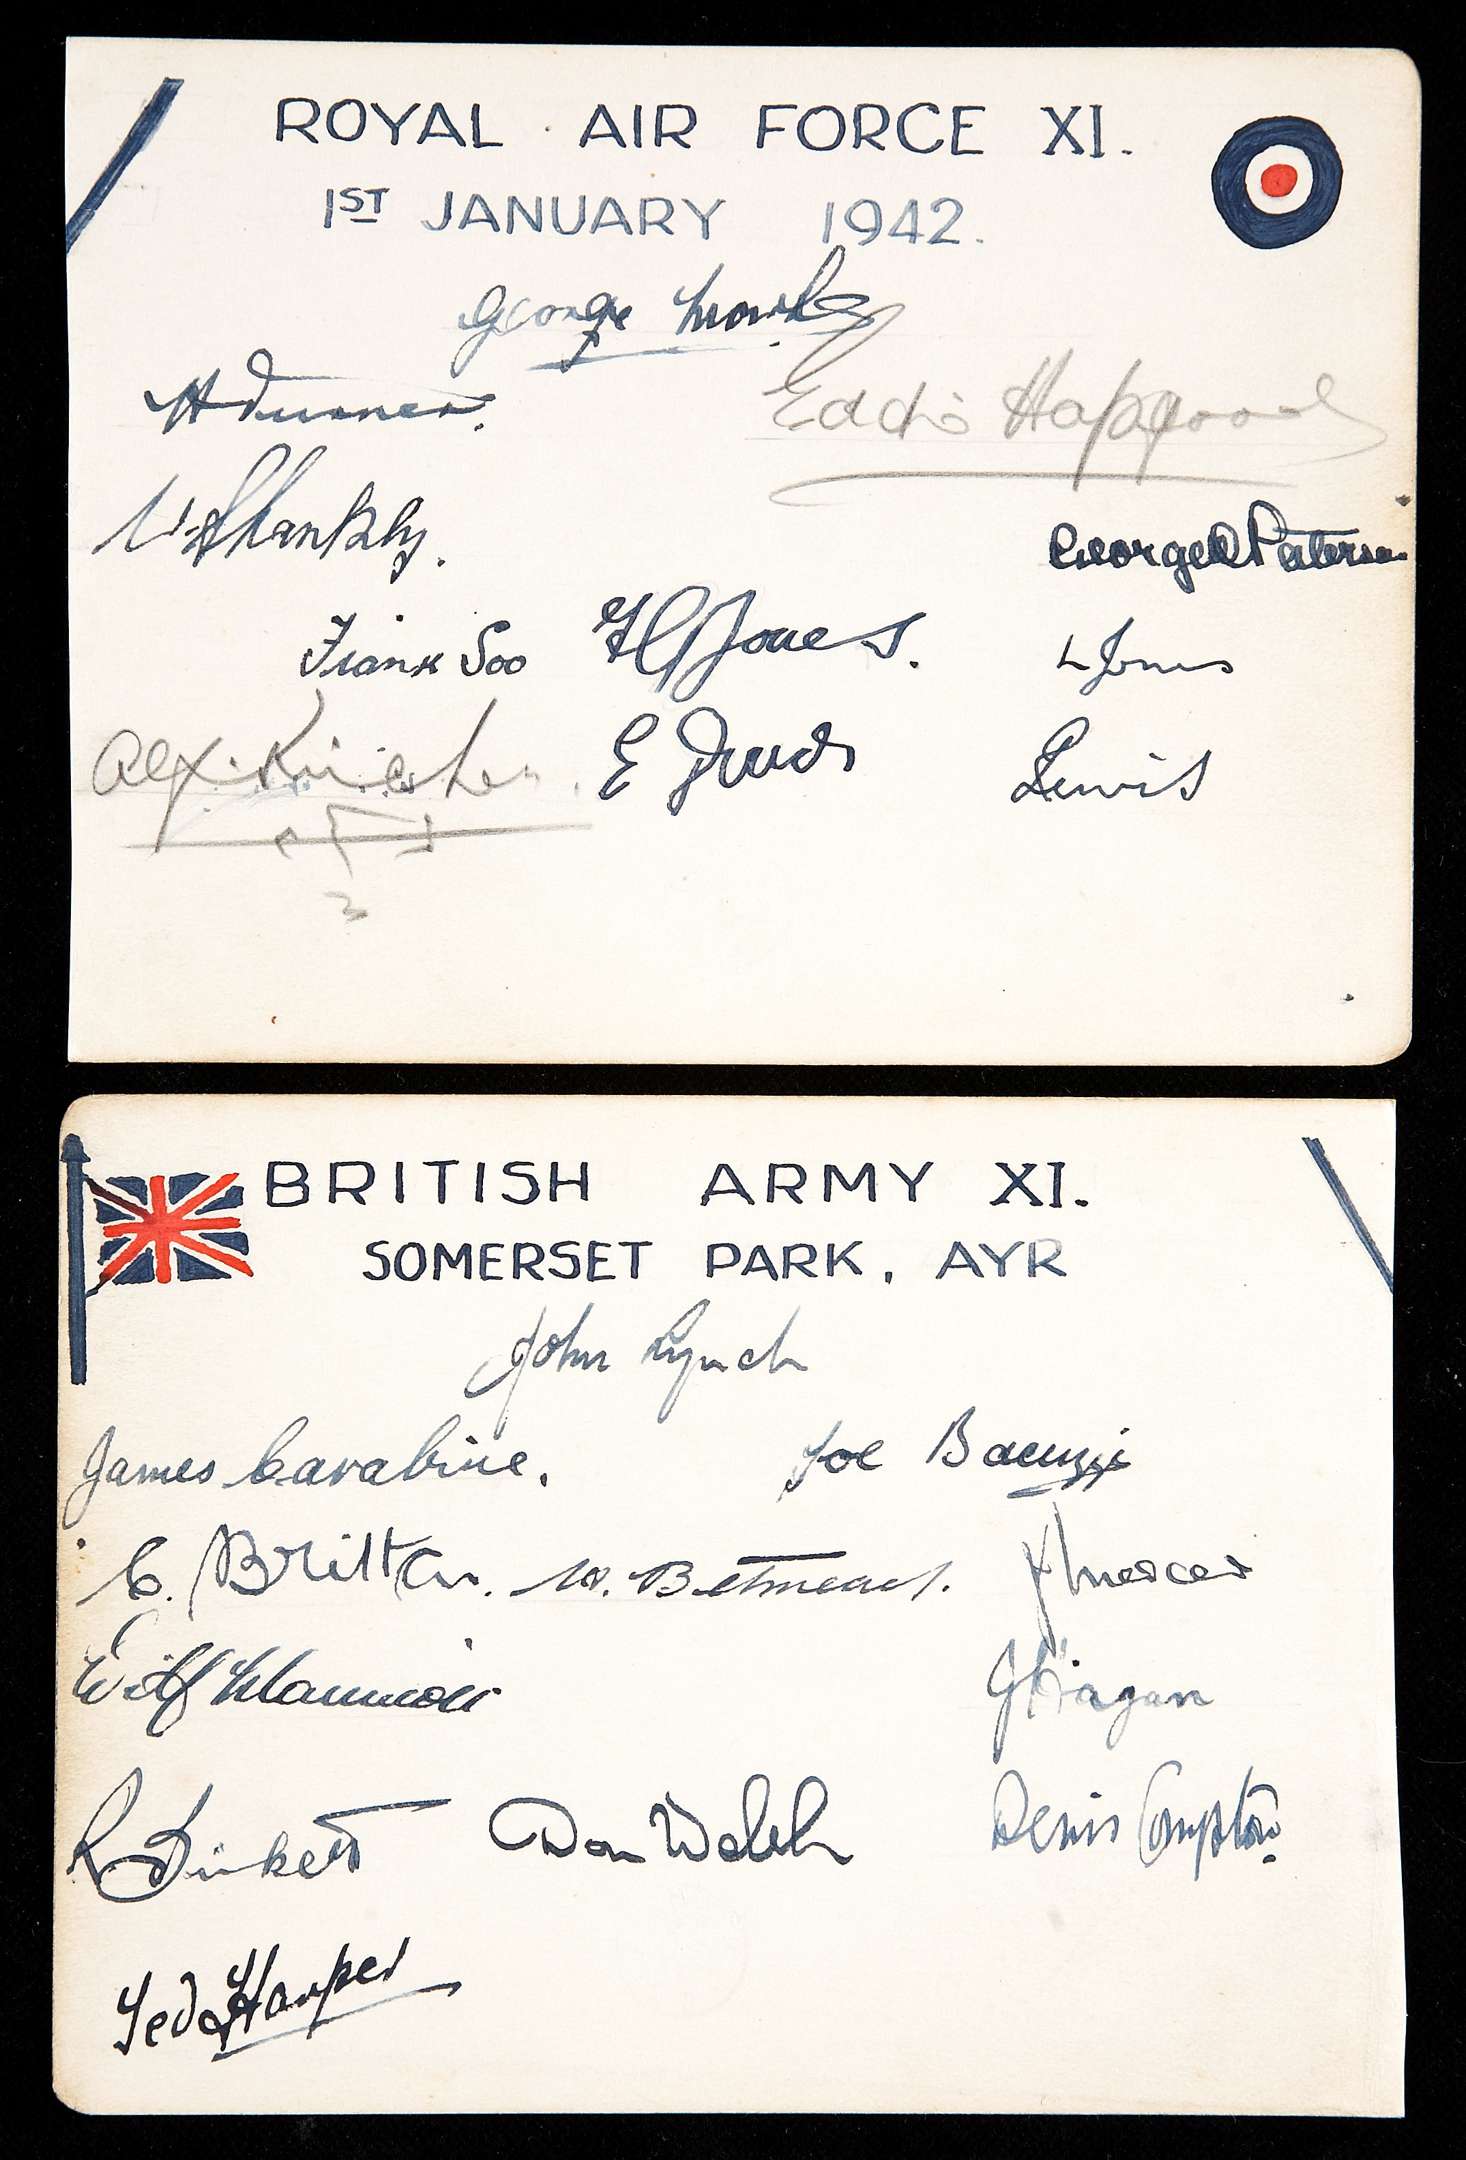 ROYAL AIR FORCE XI.
1ST JANUARY 1942.
George
H Turner.
Eddie Hapgood
W Shankly.
George D Paterson
Frank Soo
Jones.
L Jones
Alex
E
Lewis
BRITISH ARMY XI.
SOMERSET PARK, AYR
John Lynch
James Carabine.
Joe Bacuzzi
C. Britton.
W.
J Mercer
Wilf Mannion
J Hagan
R Birkett
Don Welsh
Denis Compton.
Ted Harper